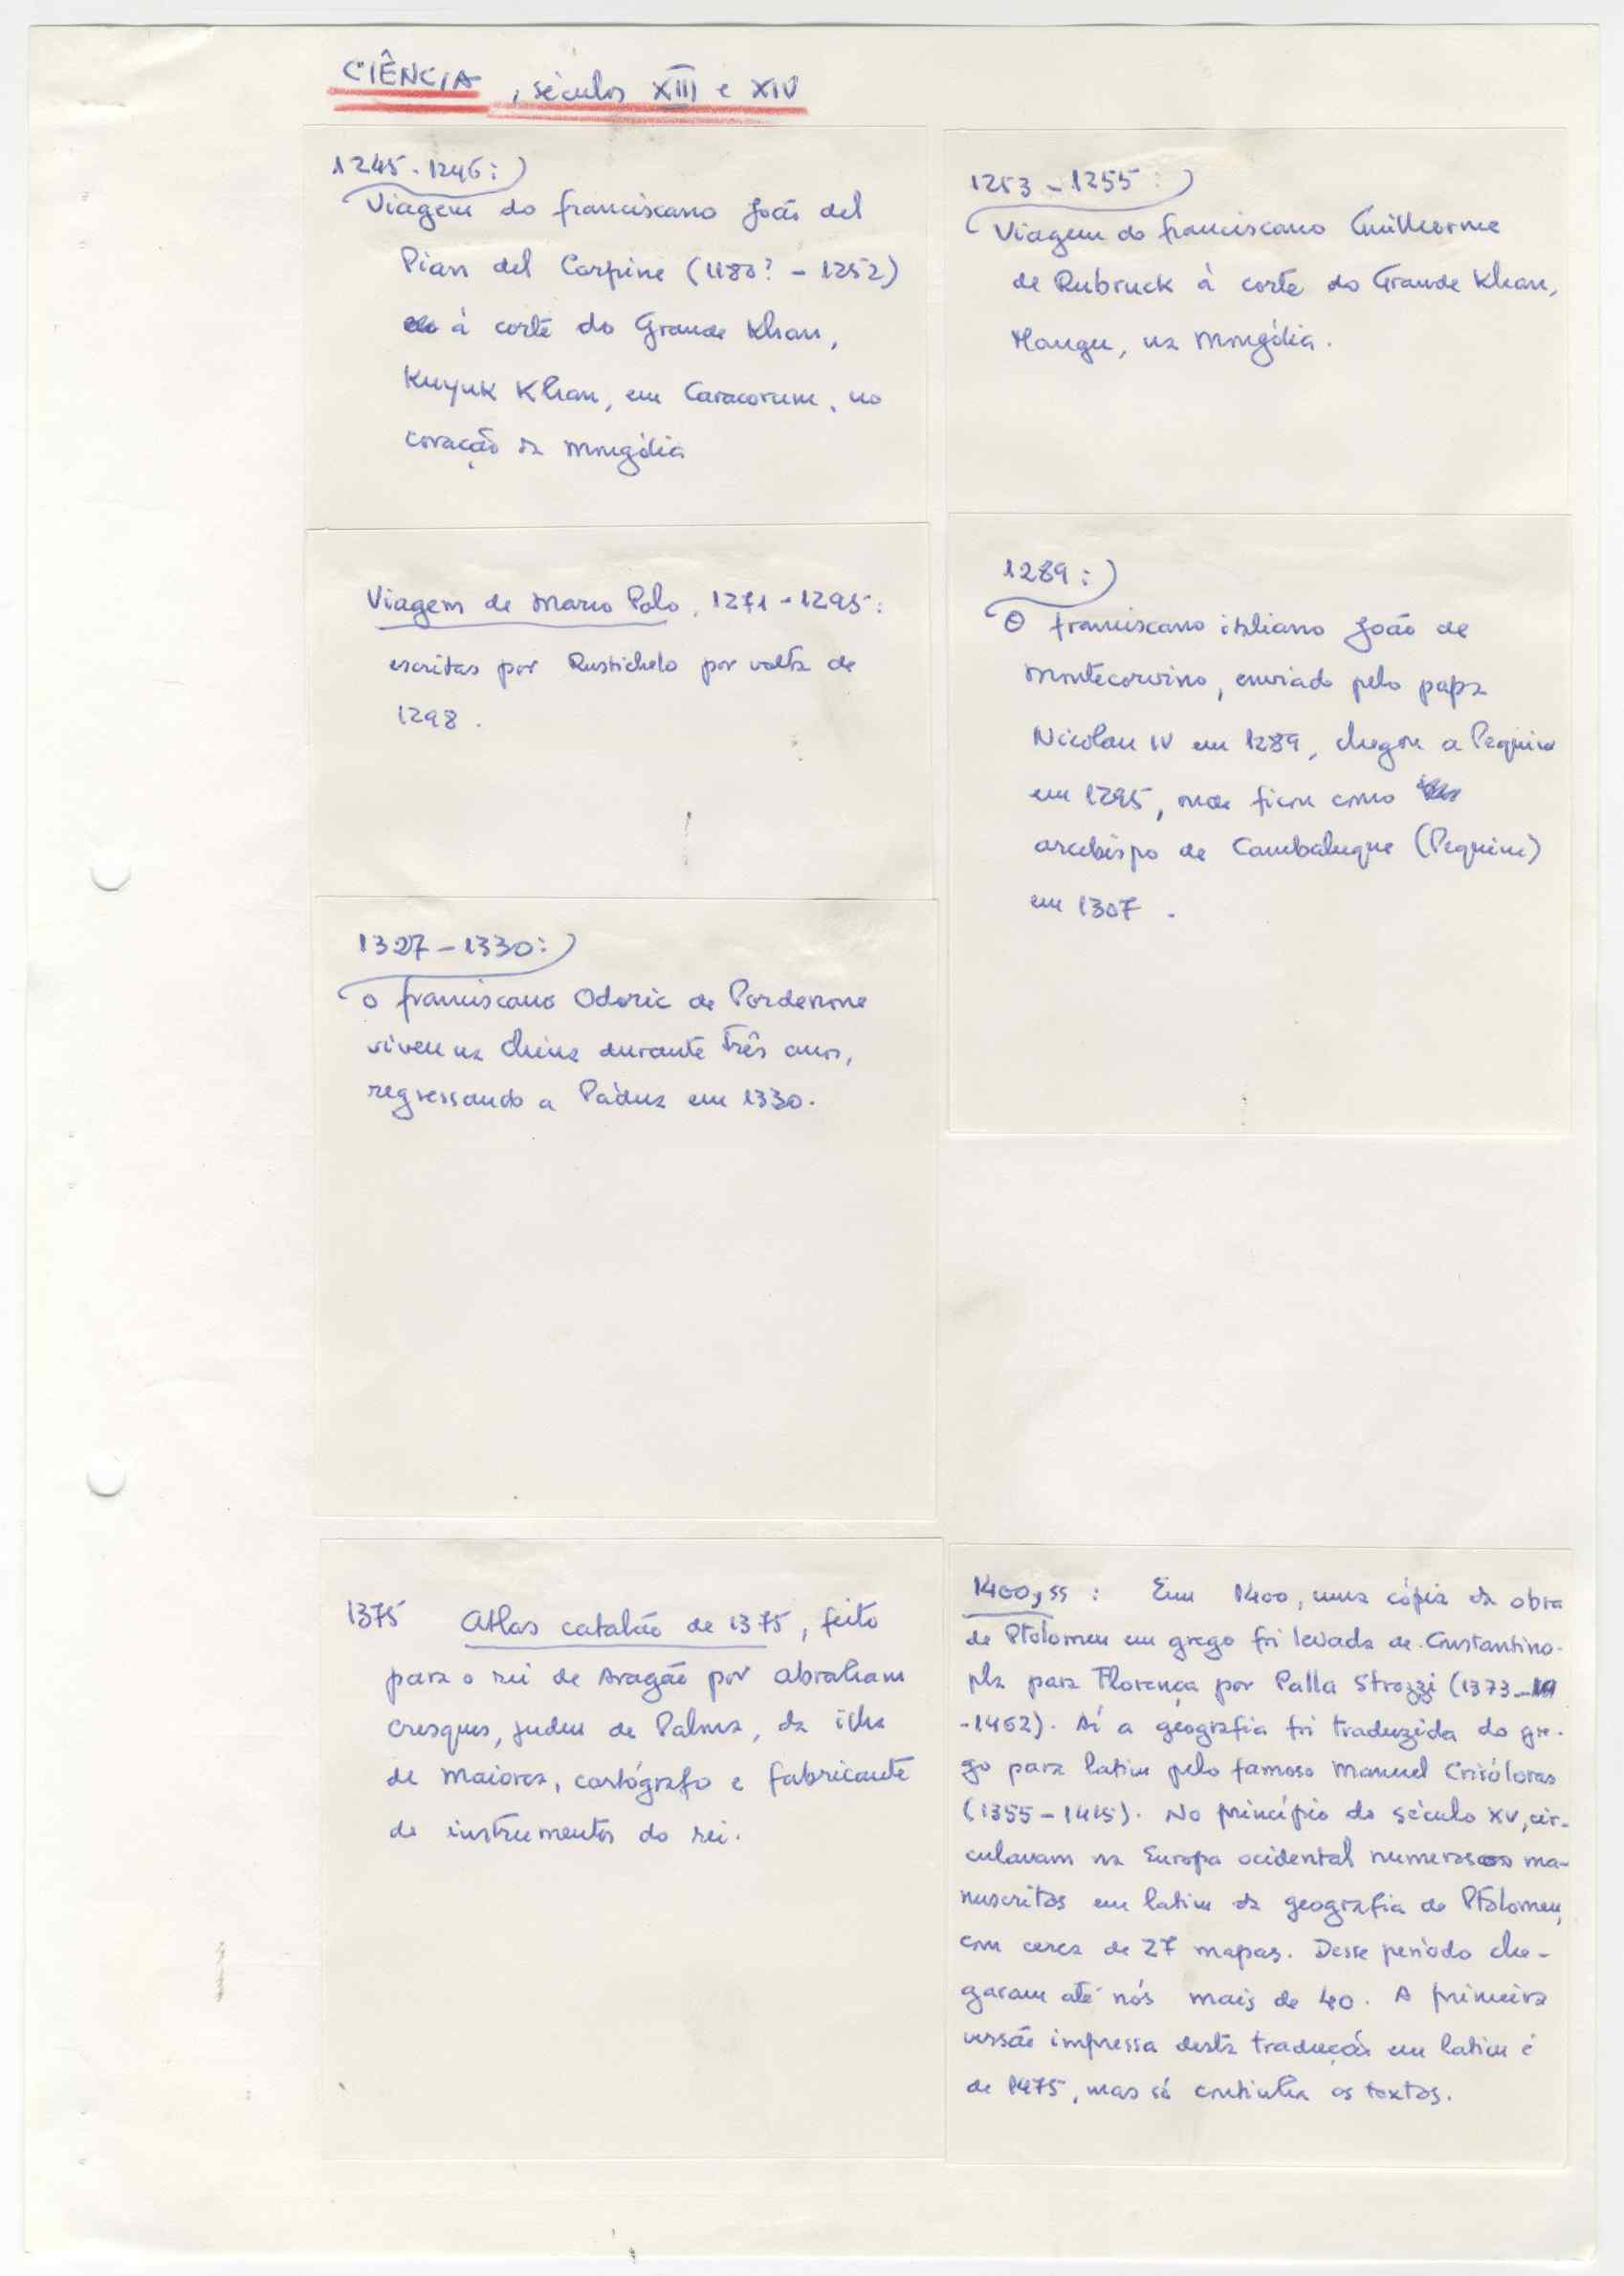 CIÊNCIA, séculos XIII e XIV
1245-1246:)
Viagem do franciscano João del
Pian del Carpine (1180? - 1252)
à corte do Grande Khan,
Kuyuk Khan, em Caracorum, no
coração da Mongólia
1253 - 1255:)
Viagem do franciscano Guilherme
de Rubruck à corte do Grande Khan,
Mangu, na Mongólia.
Viagem de Marco Polo, 1271-1295:
escritas por Rustichelo por volta de
1298.
1289:)
O franciscano italiano João de
Montecorvino, enviado pelo papa
Nicolau IV em 1289, chegou a Pequim
em 1295, onde ficou como
arcebispo de Cambaluque (Pequim)
em 1307.
1327-1330:)
O franciscano Odoric de Pordenone
viveu na China durante três anos,
regressando a Pádua em 1330.
1375 Atlas catalão de 1375, feito
para o rei de Aragão por Abraham
Cresques, judeu de Palma, da ilha
de Maiorca, cartógrafo e fabricante
de instrumentos do rei.
1400,ss: Em 1400, uma cópia da obra
de Ptolomeu em grego foi levada de Constantino-
pla para Florença por Palla Strozzi (1373-
-1462). Aí a geografia foi traduzida do gre-
go para latim pelo famoso Manuel Crisóloras
(1355-1415). No princípio do século XV, cir-
culavam na Europa ocidental numerosos ma-
nuscritos em latim da geografia de Ptolomeu,
com cerca de 27 mapas. Desse período che-
garam até nós mais de 40. A primeira
versão impressa desta tradução em latim é
de 1475, mas só continha os textos.